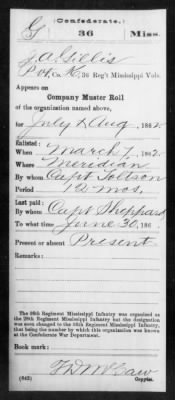 (Confederate.)
G 36 Miss.
J A Gillis
Pvt, Co. K, 36 Reg't Mississippi Vols.
Appears on
Company Muster Roll
of the organization named above,
for July & Aug, 1862.
Enlisted:
When March 7, 1862.
Where Meridian
By whom Capt
Period 12 mos.
Last paid:
By whom Capt Sheppard
To what time June 30, 186 .
Present or absent Present
Remarks:
The 36th Regiment Mississippi Infantry was organized as
the 29th Regiment Mississippi Infantry but the designation
was soon changed to the 36th Regiment Mississippi Infantry,
that being the number by which this organization was known
at the Confederate War Department.
Book mark:
(642)
Copyist.